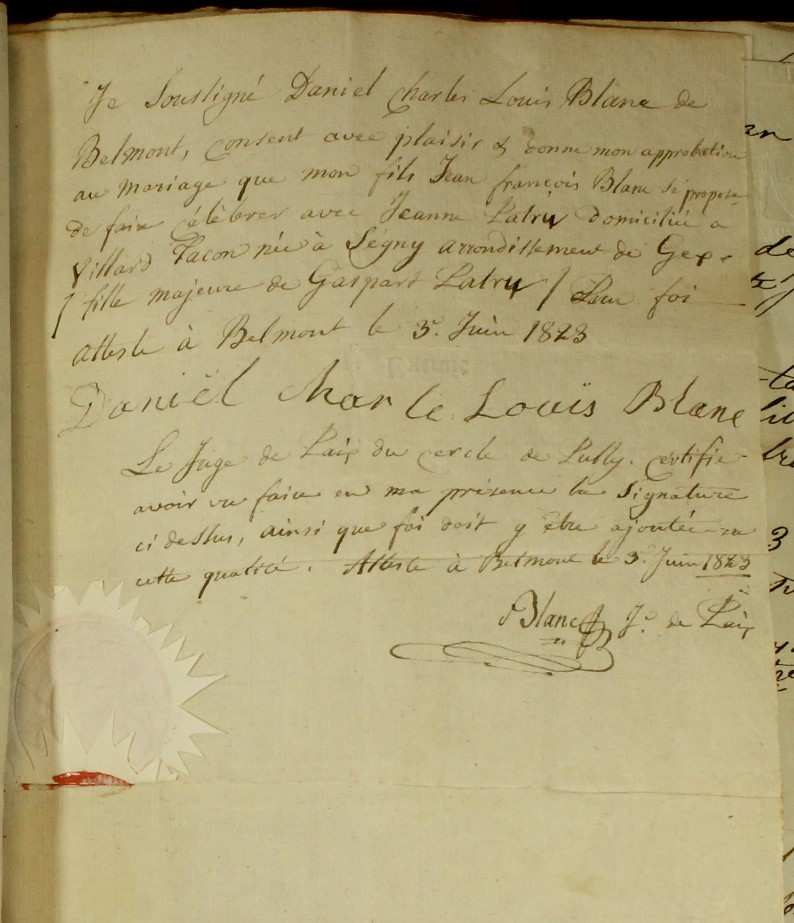 Je Soussigné Daniel Charles Louis Blanc de
Belmont, consent avec plaisir & donne mon approbation
au mariage que mon fils Jean françois Blanc se propose
de faire célébrer avec Jeanne Latry domiciliée a
Villard Tacon née à Ségny arrondissement de Gex.
/ fille majeure de Gaspart Latry / En foi
Atteste à Belmont le 3e. Juin 1823
Daniël Charle Louïs Blanc
Le Juge de Paix du cercle de Pully. certifie
avoir vu faire en ma présence la Signature
ci dessus, ainsi que foi doit y être ajoutée en
cette qualité. Atteste à Belmont le 3e. Juin 1823
Blanc J. de Paix